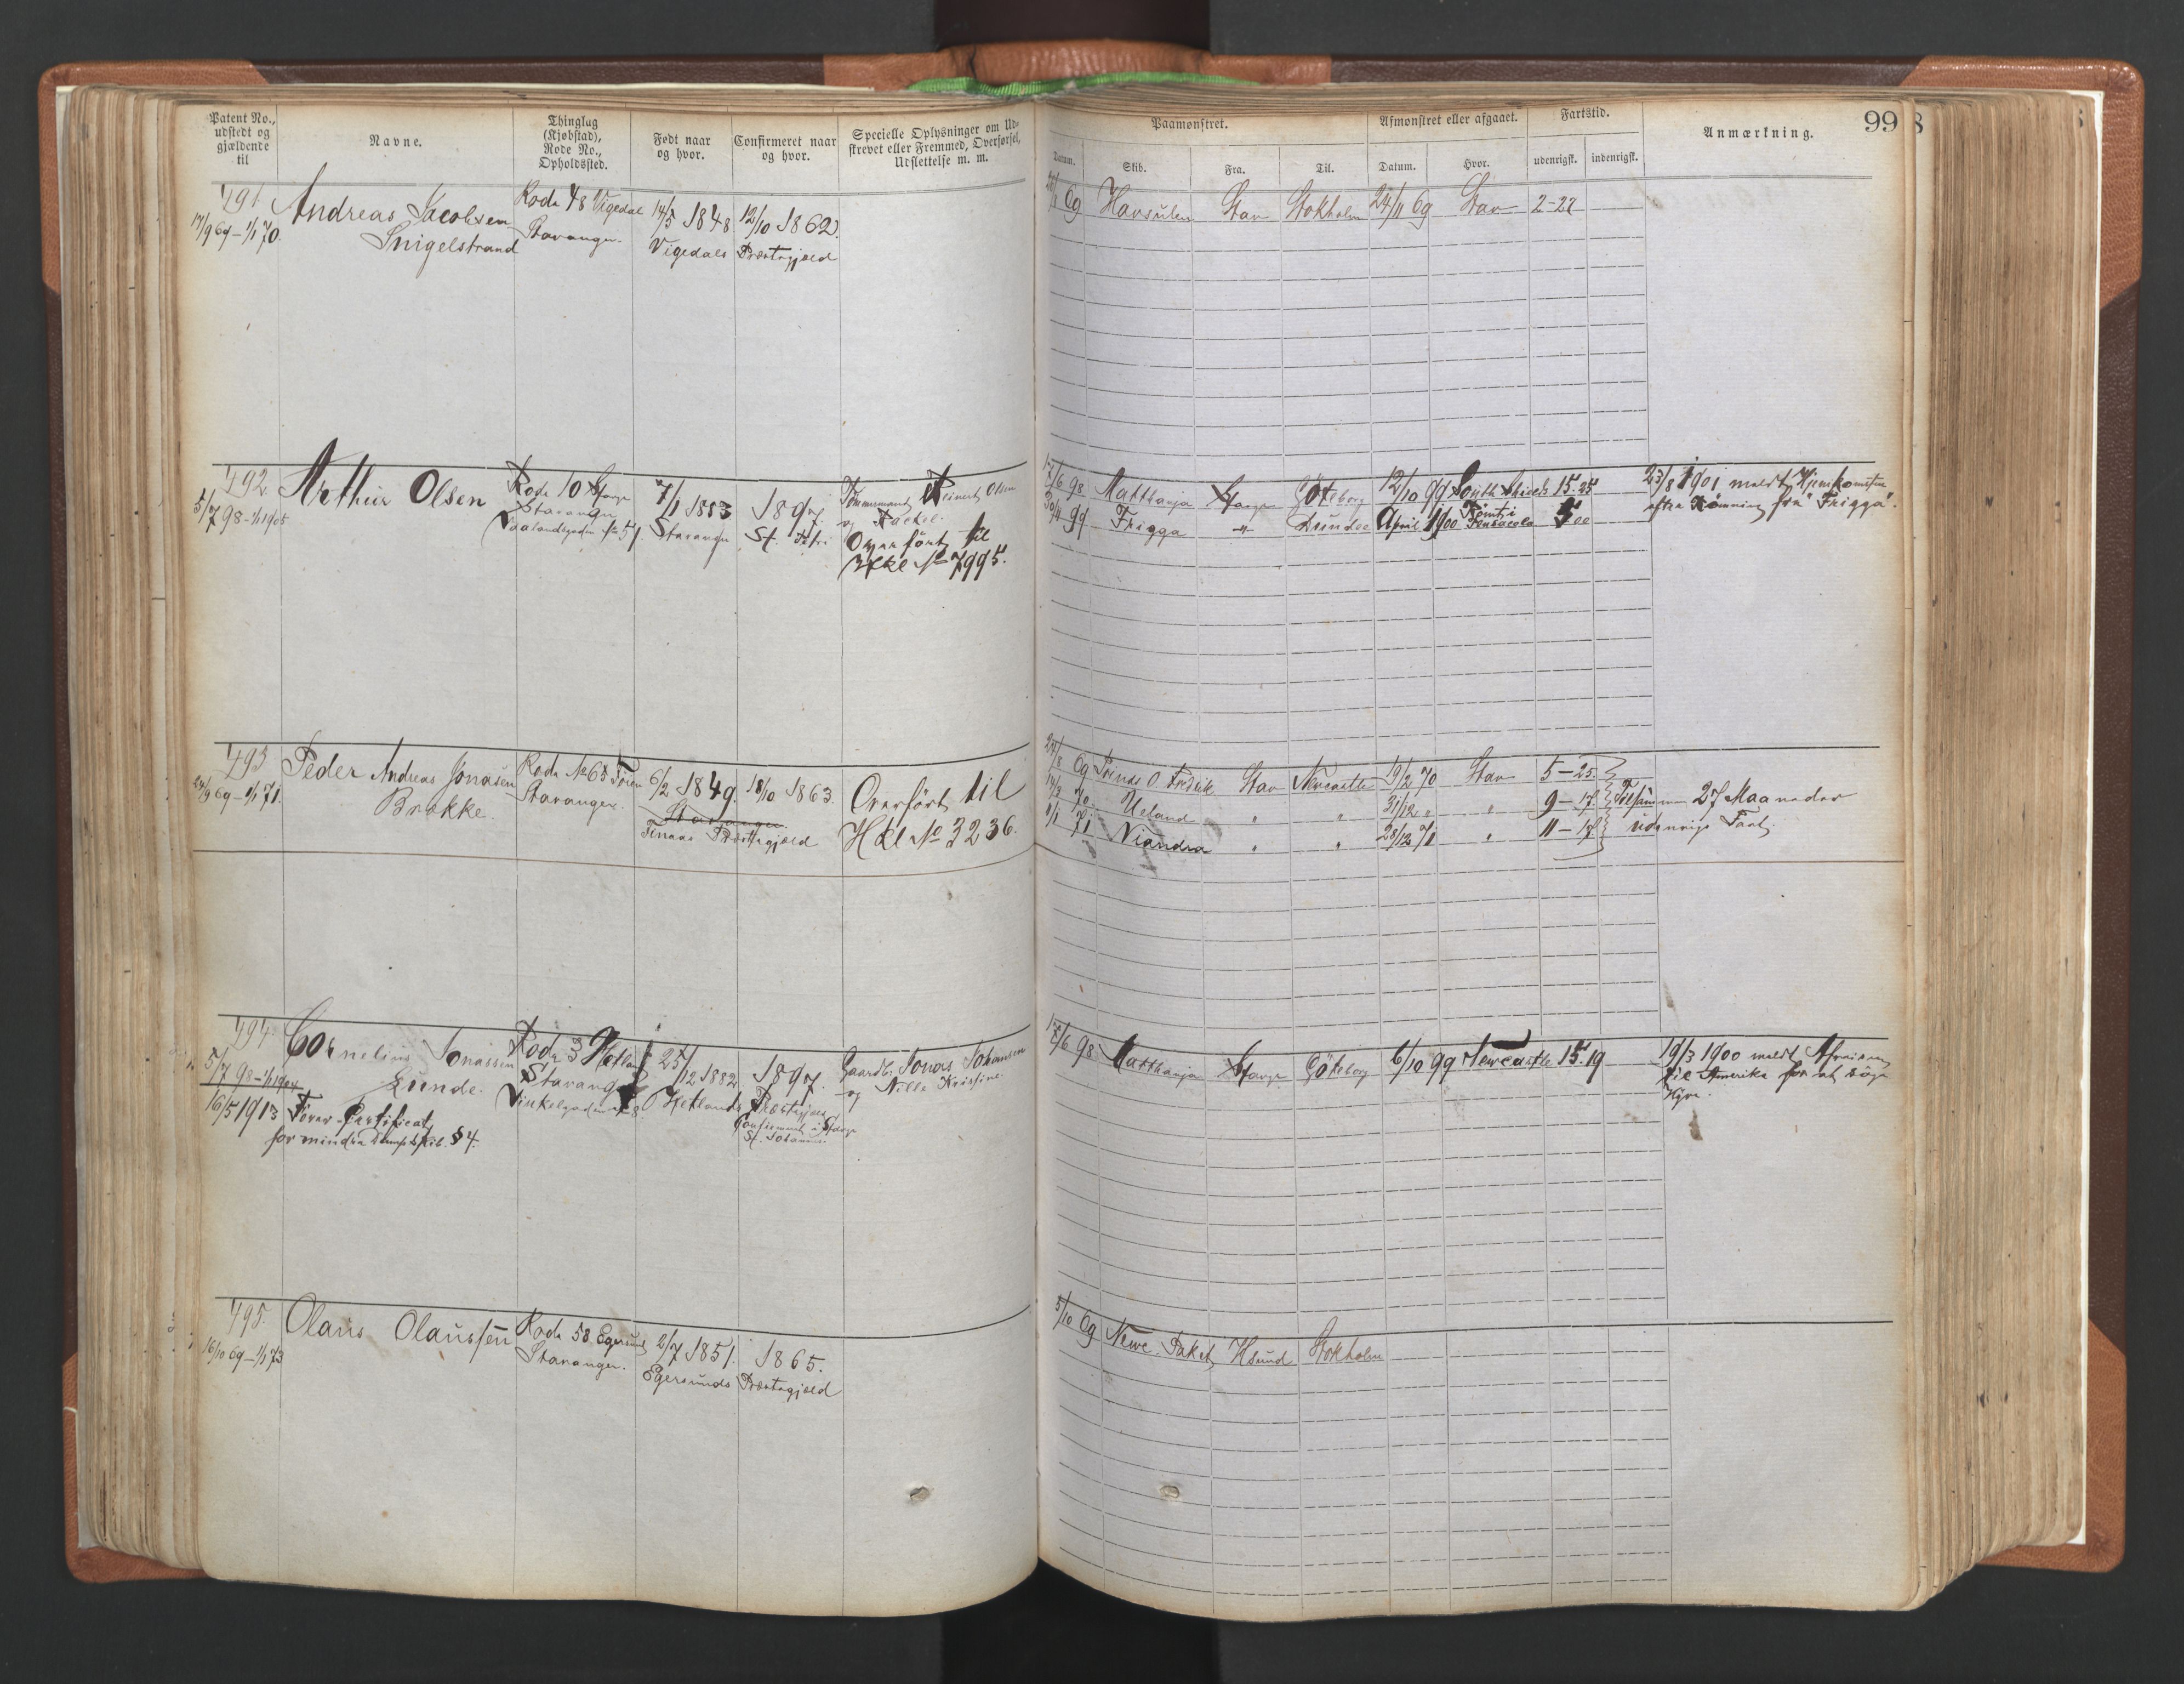 Patent No.,
udstedt og
gjældende
til
Navne.
Thinglag
(Kjøbstad),
Rode No.,
Opholdssted.
Født naar
og hvor.
Confirmeret naar
og hvor.
Specielle Oplysninger om Ud-
skrevet eller Fremmed, Overførsel,
Udslettelse m. m.
Paamønstret.
Datum.
Skib.
Fra.
Til.
Afmønstret eller afgaaet.
Datum.
Hvor.
Fartstid.
udenrigsk.
indenrigsk.
Anmærkning.
99
491
17/9 69 - 1/1 70.
Andreas Jacobsen
Snigelstrand
Rode 48 Vigedal
Stavanger.
14/5 1848
Vigedals
12/10 1862.
Præstegjæld
69 Havsulen Stav Stokholm 24/11 69 Stav 2-27
492
5/7 98 - 1/1 1905
Arthur Olsen
Rode 10 Stavgr
Stavanger
Vaalandsgaden No 51
7/1 1883
Stavanger
1897
St. Petri
Tømmermand Reinert Olsen
og Rackel.
Overført til
Hkl No 7995.
17/6 98 Matthanja Stavgr Göteborg 12/10 99 South Shields 15.25
30/4 99 Frigga " Dundee April 1900 Rømt i Pensacola
23/8 1901 meldt Hjemkomsten
efter Rømning fra "Frigga".
493
24/9 69 - 1/1 71.
Peder Andreas Jonasen
Brekke.
Rode No 65
Stavanger.
6/2 1849.
Stavanger.
Finaas Præstegjæld
18/10 1863.
Overført til
Hkl No 3236.
24/8 69 Prinds O Fredrik Stav Newcastle 19/2 70 Stav 5-25
70 Ueland " " 31/12 " " 9-17
1/1 71 Niandra " " 28/12 71 " 11-17
Tilsammen 27 Maaneder
udenrigs Fart.
494.
5/7 98 - 1/1 1904
16/5 1913
Cornelius Jonassen
Lunde.
Fører-Certificat
for mindre Dampskib. § 4.
Rode 3 Hetland
Stavanger
Vinkelgaden No 8.
25/12 1882
Hetlands
1897.
Præstegjæld
Confirmeret i Stavgr
St. Johannis.
Gaardbr. Jonas Johansen
og Nille Kristine.
17/6 98 Matthanja Stavgr Göteborg 6/10 99 Newcastle 15.19
19/3 1900 meldt Afreisen
til Amerika for at søge
Hyre.
495.
16/10 69 - 1/1 73
Olaus Olaussen
Rode 58 Egersund
Stavanger.
2/7 1851.
Egersunds
1865.
Præstegjæld
5/10 69 Newc. Paket Hsund Stokholm